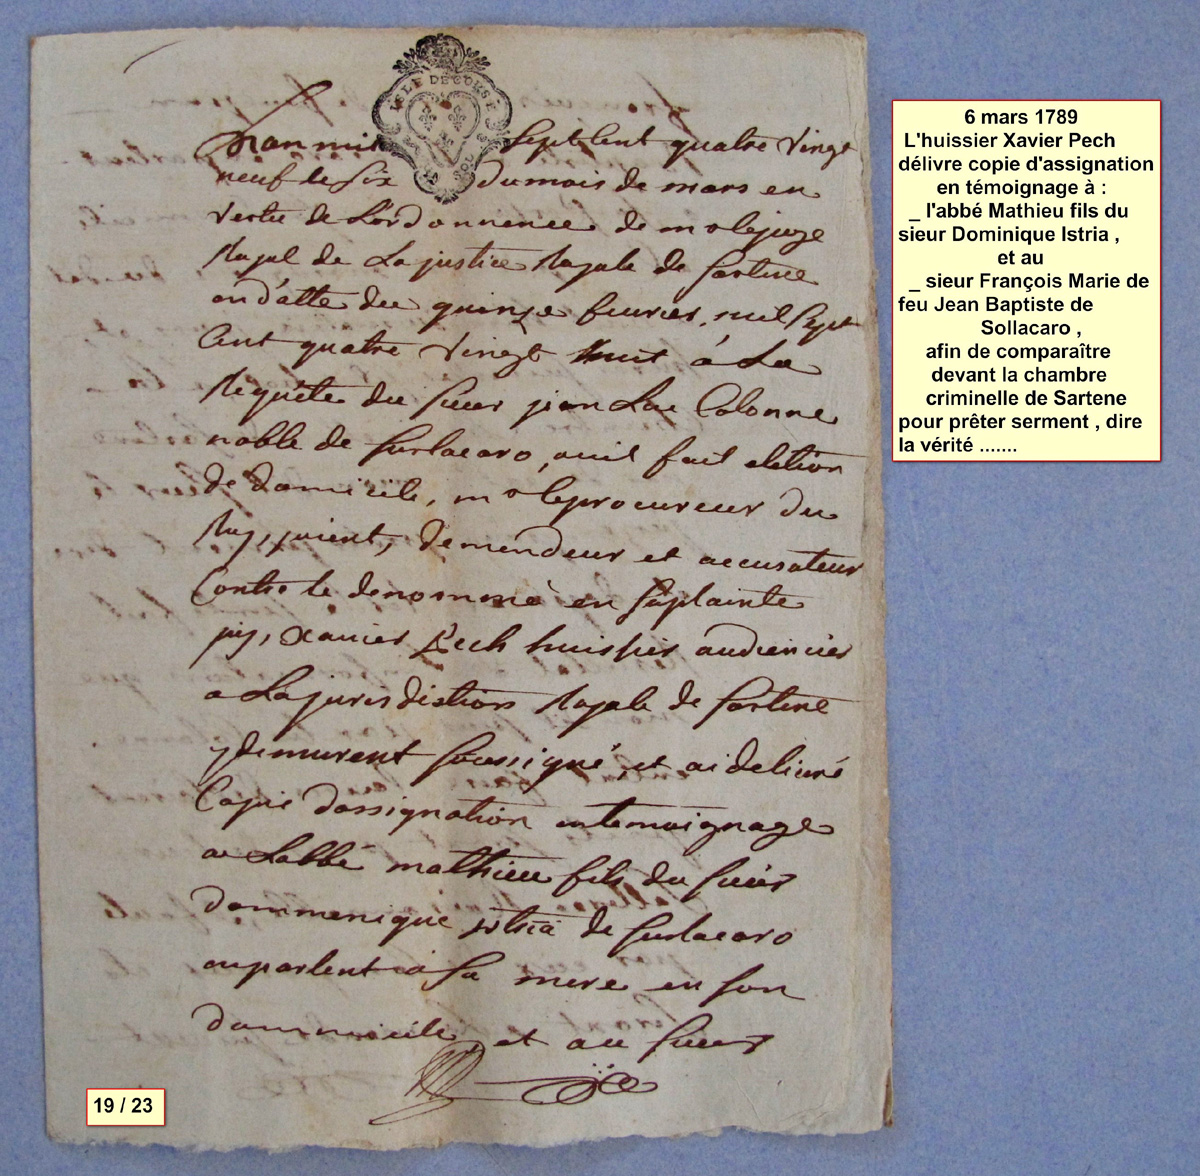 ISLE DE CORSE
SOL
Lan mil sept Cent quatre vingt
neuf le six du mois de mars en
vertu de Lordonnence de mr le juge
Royal de La justice Royale de sartene
en datte du quinze fevrier, mil sept
Cent quatre vingt huit á La
Requéte du sieur jean Luc Colonne
noble de surlacaro, ouil fait eletion
de domicile, mr le procureur du
Roy, joient, demendeur et accusateur
Contre le denommé en saplainte
jay, xavier Pech huissier audiencier
a La jurisdiction Royale de sartene
y demurent soussigné, et ai delivré
Copie dassignation entemoignage
a Labbé mathieu fils du sieur
dommenique istria de surlacaro
emparlent á sa mere en son
dommicile, et au sieur
6 mars 1789
L'huissier Xavier Pech
délivre copie d'assignation
en témoignage à :
_ l'abbé Mathieu fils du
sieur Dominique Istria ,
et au
_ sieur François Marie de
feu Jean Baptiste de
Sollacaro ,
afin de comparaître
devant la chambre
criminelle de Sartene
pour prêter serment , dire
la vérité .......
19 / 23